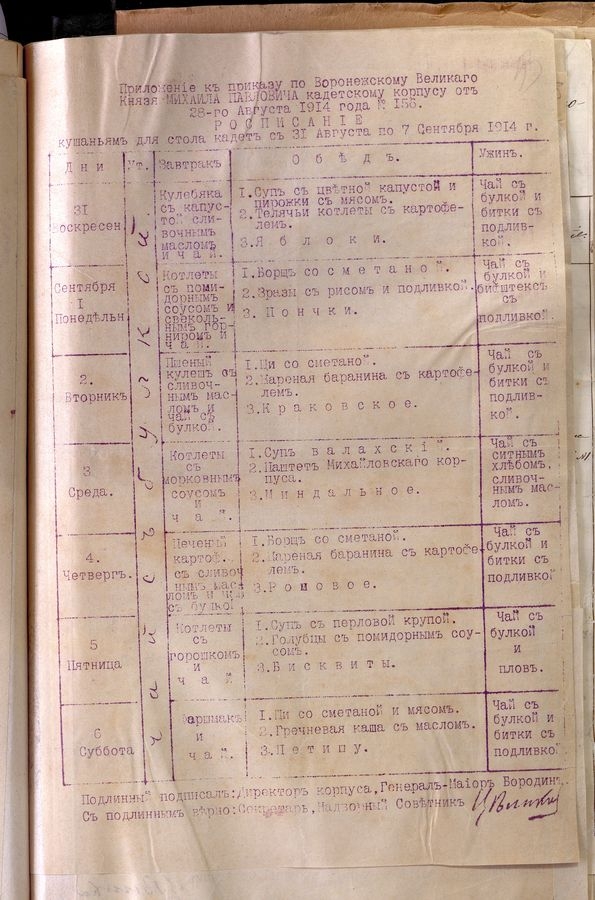 Приложеніе къ приказу по Воронежскому Великаго
Князя МИХАИЛА ПАВЛОВИЧА кадетскому корпусу отъ
28-го Августа 1914 года № 156.
РОСПИСАНІЕ
кушаньямъ для стола кадетъ съ 31 Августа по 7 Сентября 1914 г.
Дни
Ут.
Завтракъ
Обѣдъ.
Ужинъ.
чай съ булкой.
31
оскресен
Кулебяка
съ капус-
той сли-
вочнымъ
масломъ
и чай.
1.Супъ съ цвѣтной капустой и
пирожки съ мясомъ.
2.Телячьи котлеты съ картофе-
лемъ.
3.Яблоки.
Чай съ
булкой и
битки съ
подлив-
кой.
Сентября
1
Понедѣльн
Котлеты
съ поми-
дорнымъ
соусомъ и
свеколь-
нымъ гор-
ниромъ и
чай.
1.Борщъ со сметаной.
2.Зразы съ рисомъ и подливкой.
3.Пончки.
Чай съ
булкой и
бифштексъ
съ
подливкой.
2.
Вторникъ
Пшеный
кулешъ съ
сливоч-
нымъ мас-
ломъ и
чай съ
булкой.
1.Щи со сметаной.
2.Жареная баранина съ картофе-
лемъ.
3.Краковское.
Чай съ
булкой и
битки съ
подлив-
кой.
3
Среда.
Котлеты
съ
морковнымъ
соусомъ
и
чай.
1.Супъ валахскій.
2.Паштетъ Михайловскаго кор-
пуса.
3.Миндальное.
Чай съ
ситнымъ
хлѣбомъ,
сливоч-
нымъ мас-
ломъ.
4.
Четвергъ.
Печеный
картоф.
съ сливоч
нымъ мас
ломъ и чай
съ булкой
1.Борщъ со сметаной.
2.Жареная баранина съ картофе-
лемъ.
3.Ромовое.
Чай съ
булкой и
битки съ
подливкой
5
Пятница
Котлеты
съ
горошкомъ
и
чай
1.Супъ съ перловой крупой.
2.Голубцы съ помидорнымъ соу-
сомъ.
3.Бисквиты.
Чай съ
булкой
и
пловъ.
6
Суббота
Форшмакъ
и
чай.
1.Щи со сметаной и мясомъ.
2.Гречневая каша съ масломъ.
3.Петишу.
Чай съ
булкой и
битки съ
подливкой
Подлинный подписалъ:Директоръ корпуса,Генералъ-Маіоръ Бородинъ.
Съ подлиннымъ вѣрно:Секретарь,Надворный Совѣтникъ